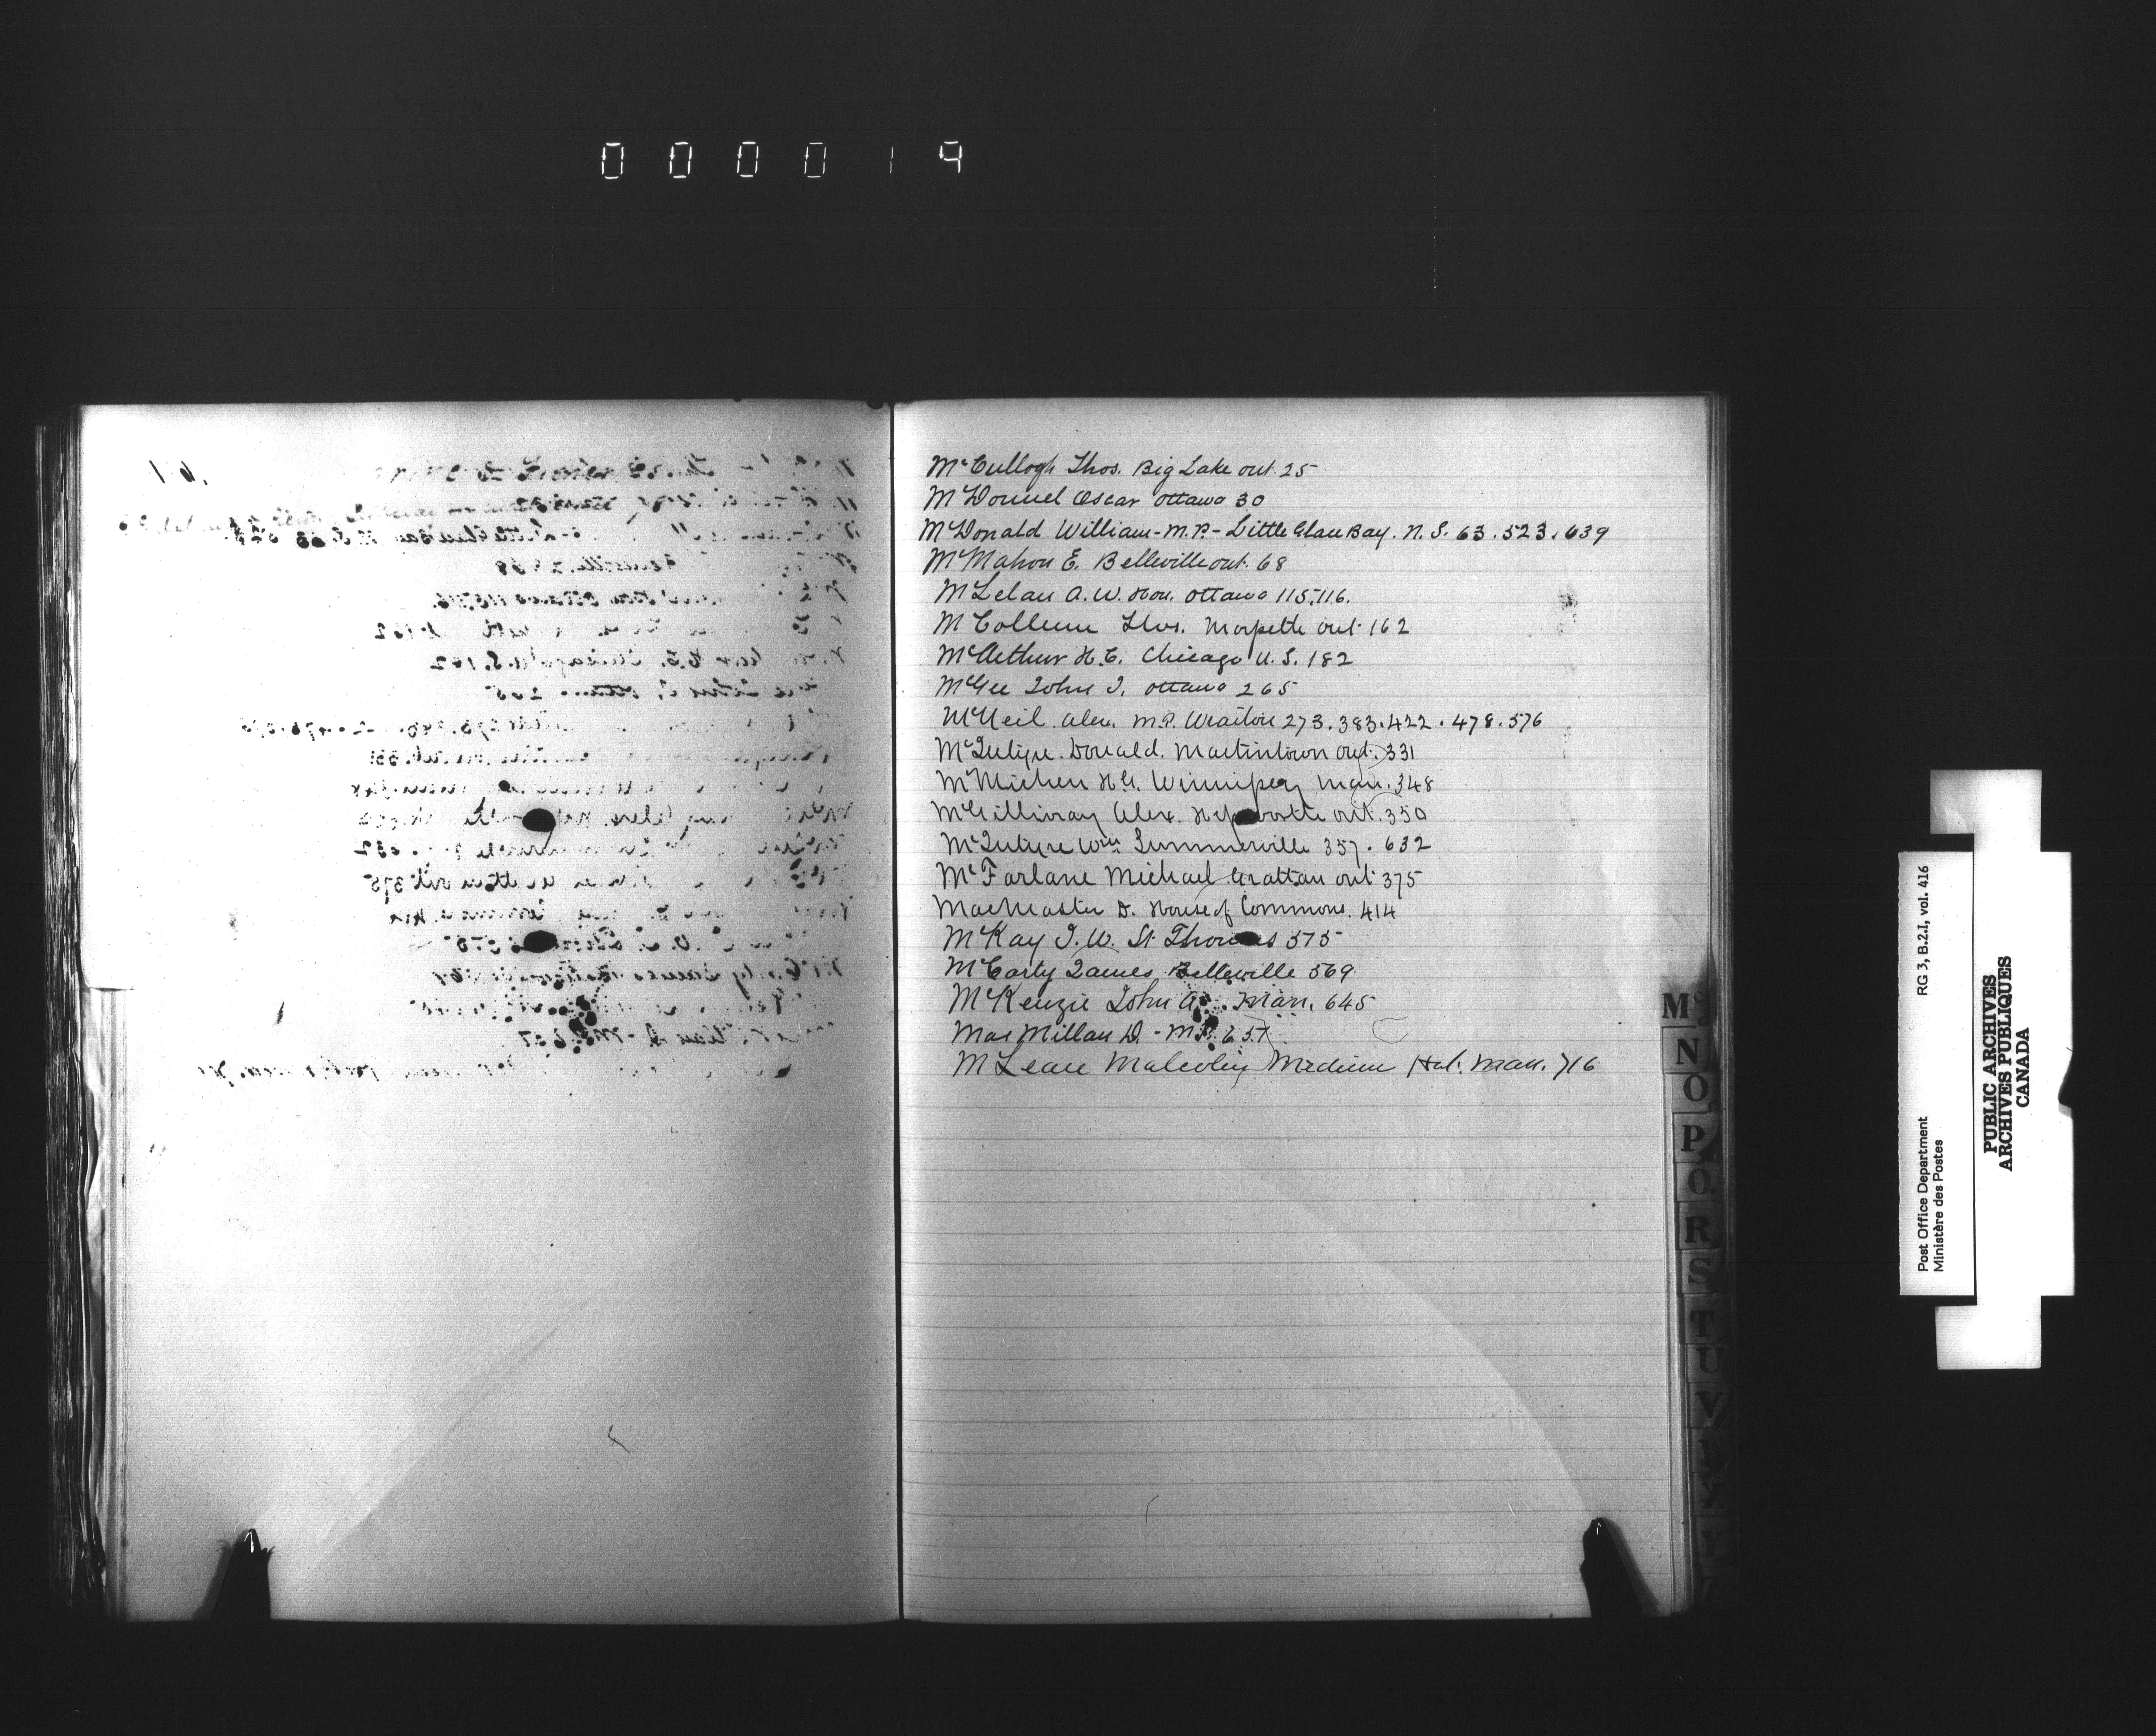 000019
McCullogh Thos. Big Lake ont. 25
McDonnel Oscar Ottawa 30
McDonald William - M.P. - Little Glace Bay. N.S. 63.523.639
McMahon E. Belleville ont. 68
McLelan A.W. Hon. Ottawa 115.116.
McCollum Thos. Morpeth ont. 162
McArthur H.C. Chicago U.S. 182
McGee John J. Ottawa 265
McNeil Alex. M.P. Wiarton 273.383.422.478.576
McIntyre Donald. Martintown ont. 331
McMicken H.G. Winnipeg Man. 348
McGillivray Alex. Hepworth ont. 350
McIntyre Wm Summerville 357.632
McFarlane Michael Grattan ont 375
MacMaster D. House of Commons. 414
McKay J.W. St Thomas 575
McCarty James Belleville 569
McKenzie John A. Man. 645
MacMillan D. - M.P. 657
McLean Malcolm Medicine Hat. Man. 716
Mc
N
O
P
Q
R
S
T
U
V
W
Y
Z
RG 3, B.2.I, vol. 416
Post Office Department
Ministère des Postes
PUBLIC ARCHIVES
ARCHIVES PUBLIQUES
CANADA